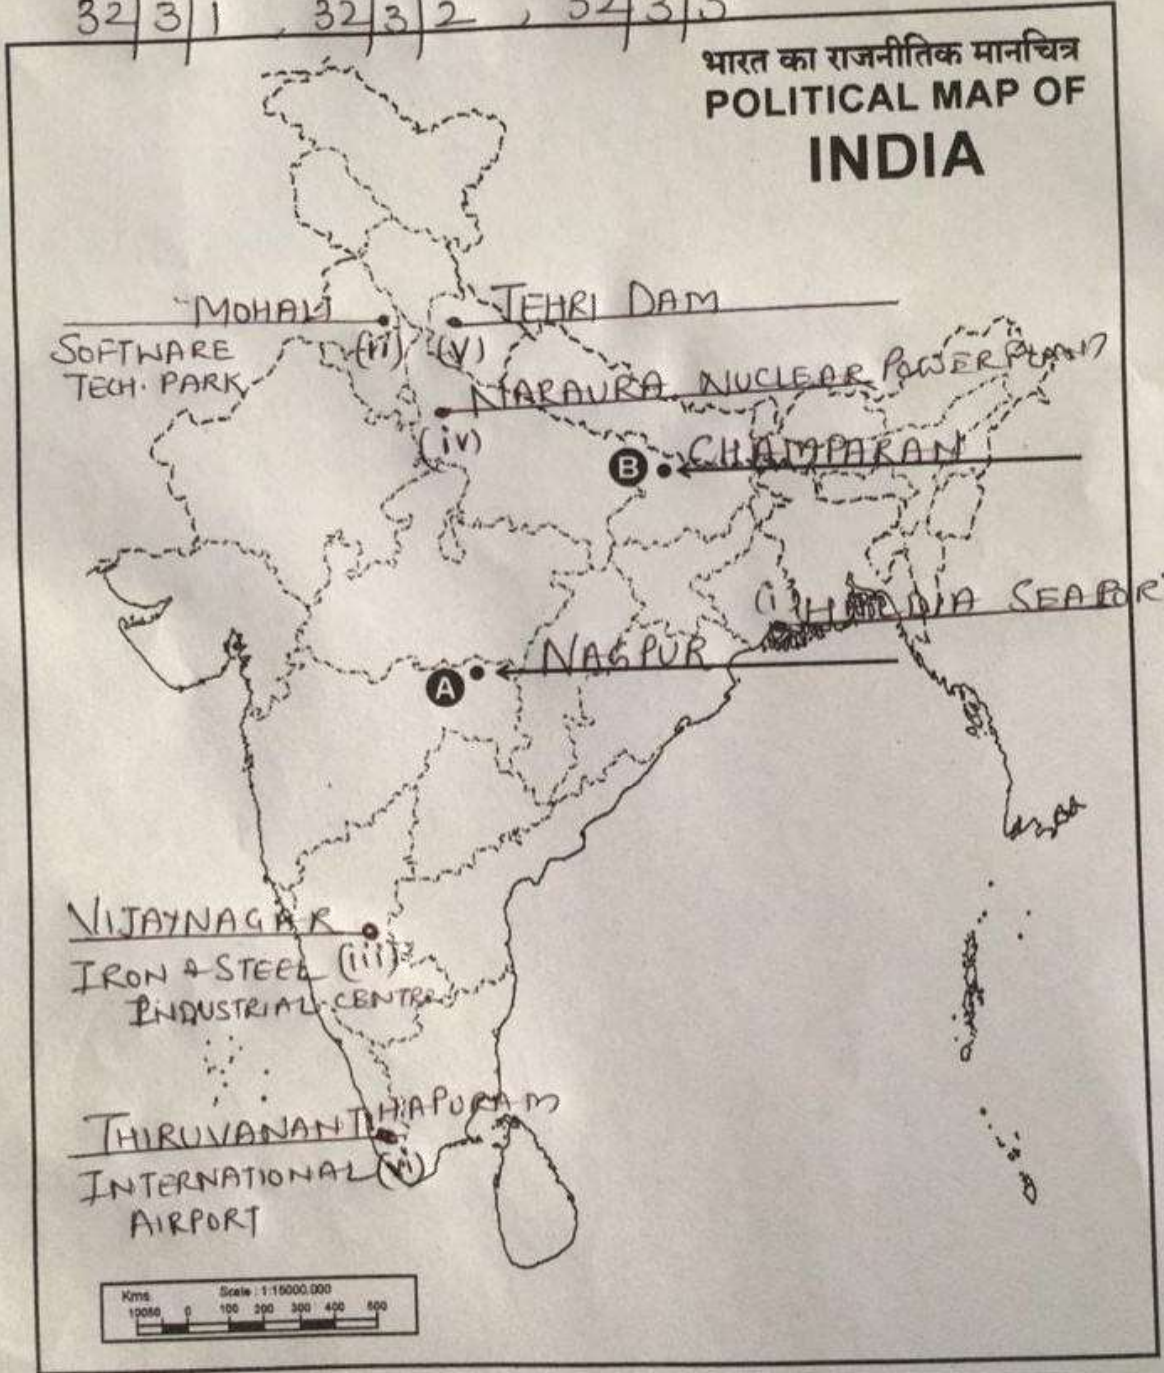 32/3/1 , 32/3/2 , 32/3/3
भारत का राजनीतिक मानचित्र
POLITICAL MAP OF
INDIA
MOHALI
TEHRI DAM
SOFTWARE
TECH. PARK
(ii)
(v)
NARAURA NUCLEAR POWER PLANT
(iv)
B
CHAMPARAN
(i)
HALDIA SEAPOR
NAGPUR
A
VIJAYNAGAR
IRON & STEEL (iii)
INDUSTRIAL CENTRE
THIRUVANANTHAPURAM
INTERNATIONAL (vi)
AIRPORT
Kms
Scale : 1:15000,000
10050 0 100 200 300 400 500